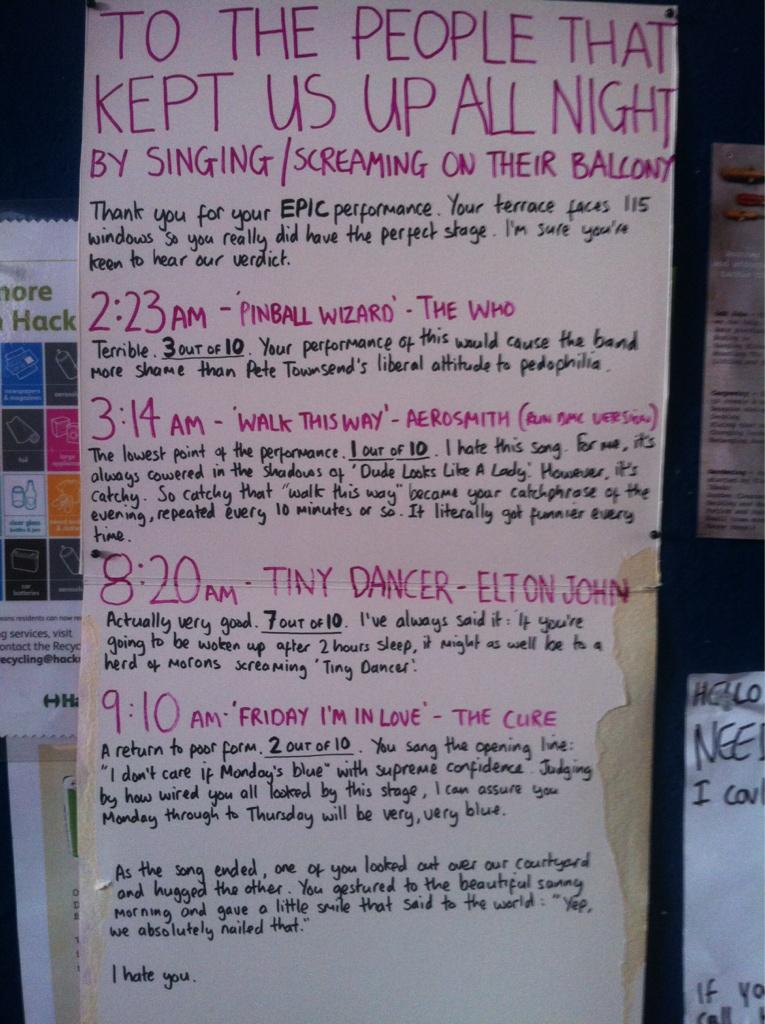 TO THE PEOPLE THAT
KEPT US UP ALL NIGHT
BY SINGING/SCREAMING ON THEIR BALCONY
Thank you for your EPIC performance. Your terrace faces 115
windows so you really did have the perfect stage. I'm sure you're
keen to hear our verdict.
2:23 AM - 'PINBALL WIZARD' - THE WHO
Terrible. 3 OUT OF 10. Your performance of this would cause the band
more shame than Pete Townsend's liberal attitude to pedophilia.
3:14 AM - 'WALK THIS WAY' - AEROSMITH (RUN DMC VERSION)
The lowest point of the performance. 1 OUT OF 10. I hate this song. For me, it's
always cowered in the shadows of 'Dude Looks Like A Lady.' However, it's
catchy. So catchy that "walk this way" became your catchphrase of the
evening, repeated every 10 minutes or so. It literally got funnier every
time.
8:20 AM - TINY DANCER - ELTON JOHN
Actually very good. 7 OUT OF 10. I've always said it: 'If you're
going to be woken up after 2 hours sleep, it might as well be to a
herd of morons screaming 'Tiny Dancer'.
9:10 AM - 'FRIDAY I'M IN LOVE' - THE CURE
A return to poor form. 2 OUT OF 10. You sang the opening line:
"I don't care if Monday's blue" with supreme confidence. Judging
by how wired you all looked by this stage, I can assure you
Monday through to Thursday will be very, very blue.
As the song ended, one of you looked out over our courtyard
and hugged the other. You gestured to the beautiful sunny
morning and gave a little smile that said to the world: "Yep,
we absolutely nailed that."
I hate you.
more
Hack
newspapers
& magazines
foil
clear glass
car
batteries
residents can now
services, visit
contact the
ecycling@hack
Ha
HELLO
NEE
I
IF YO